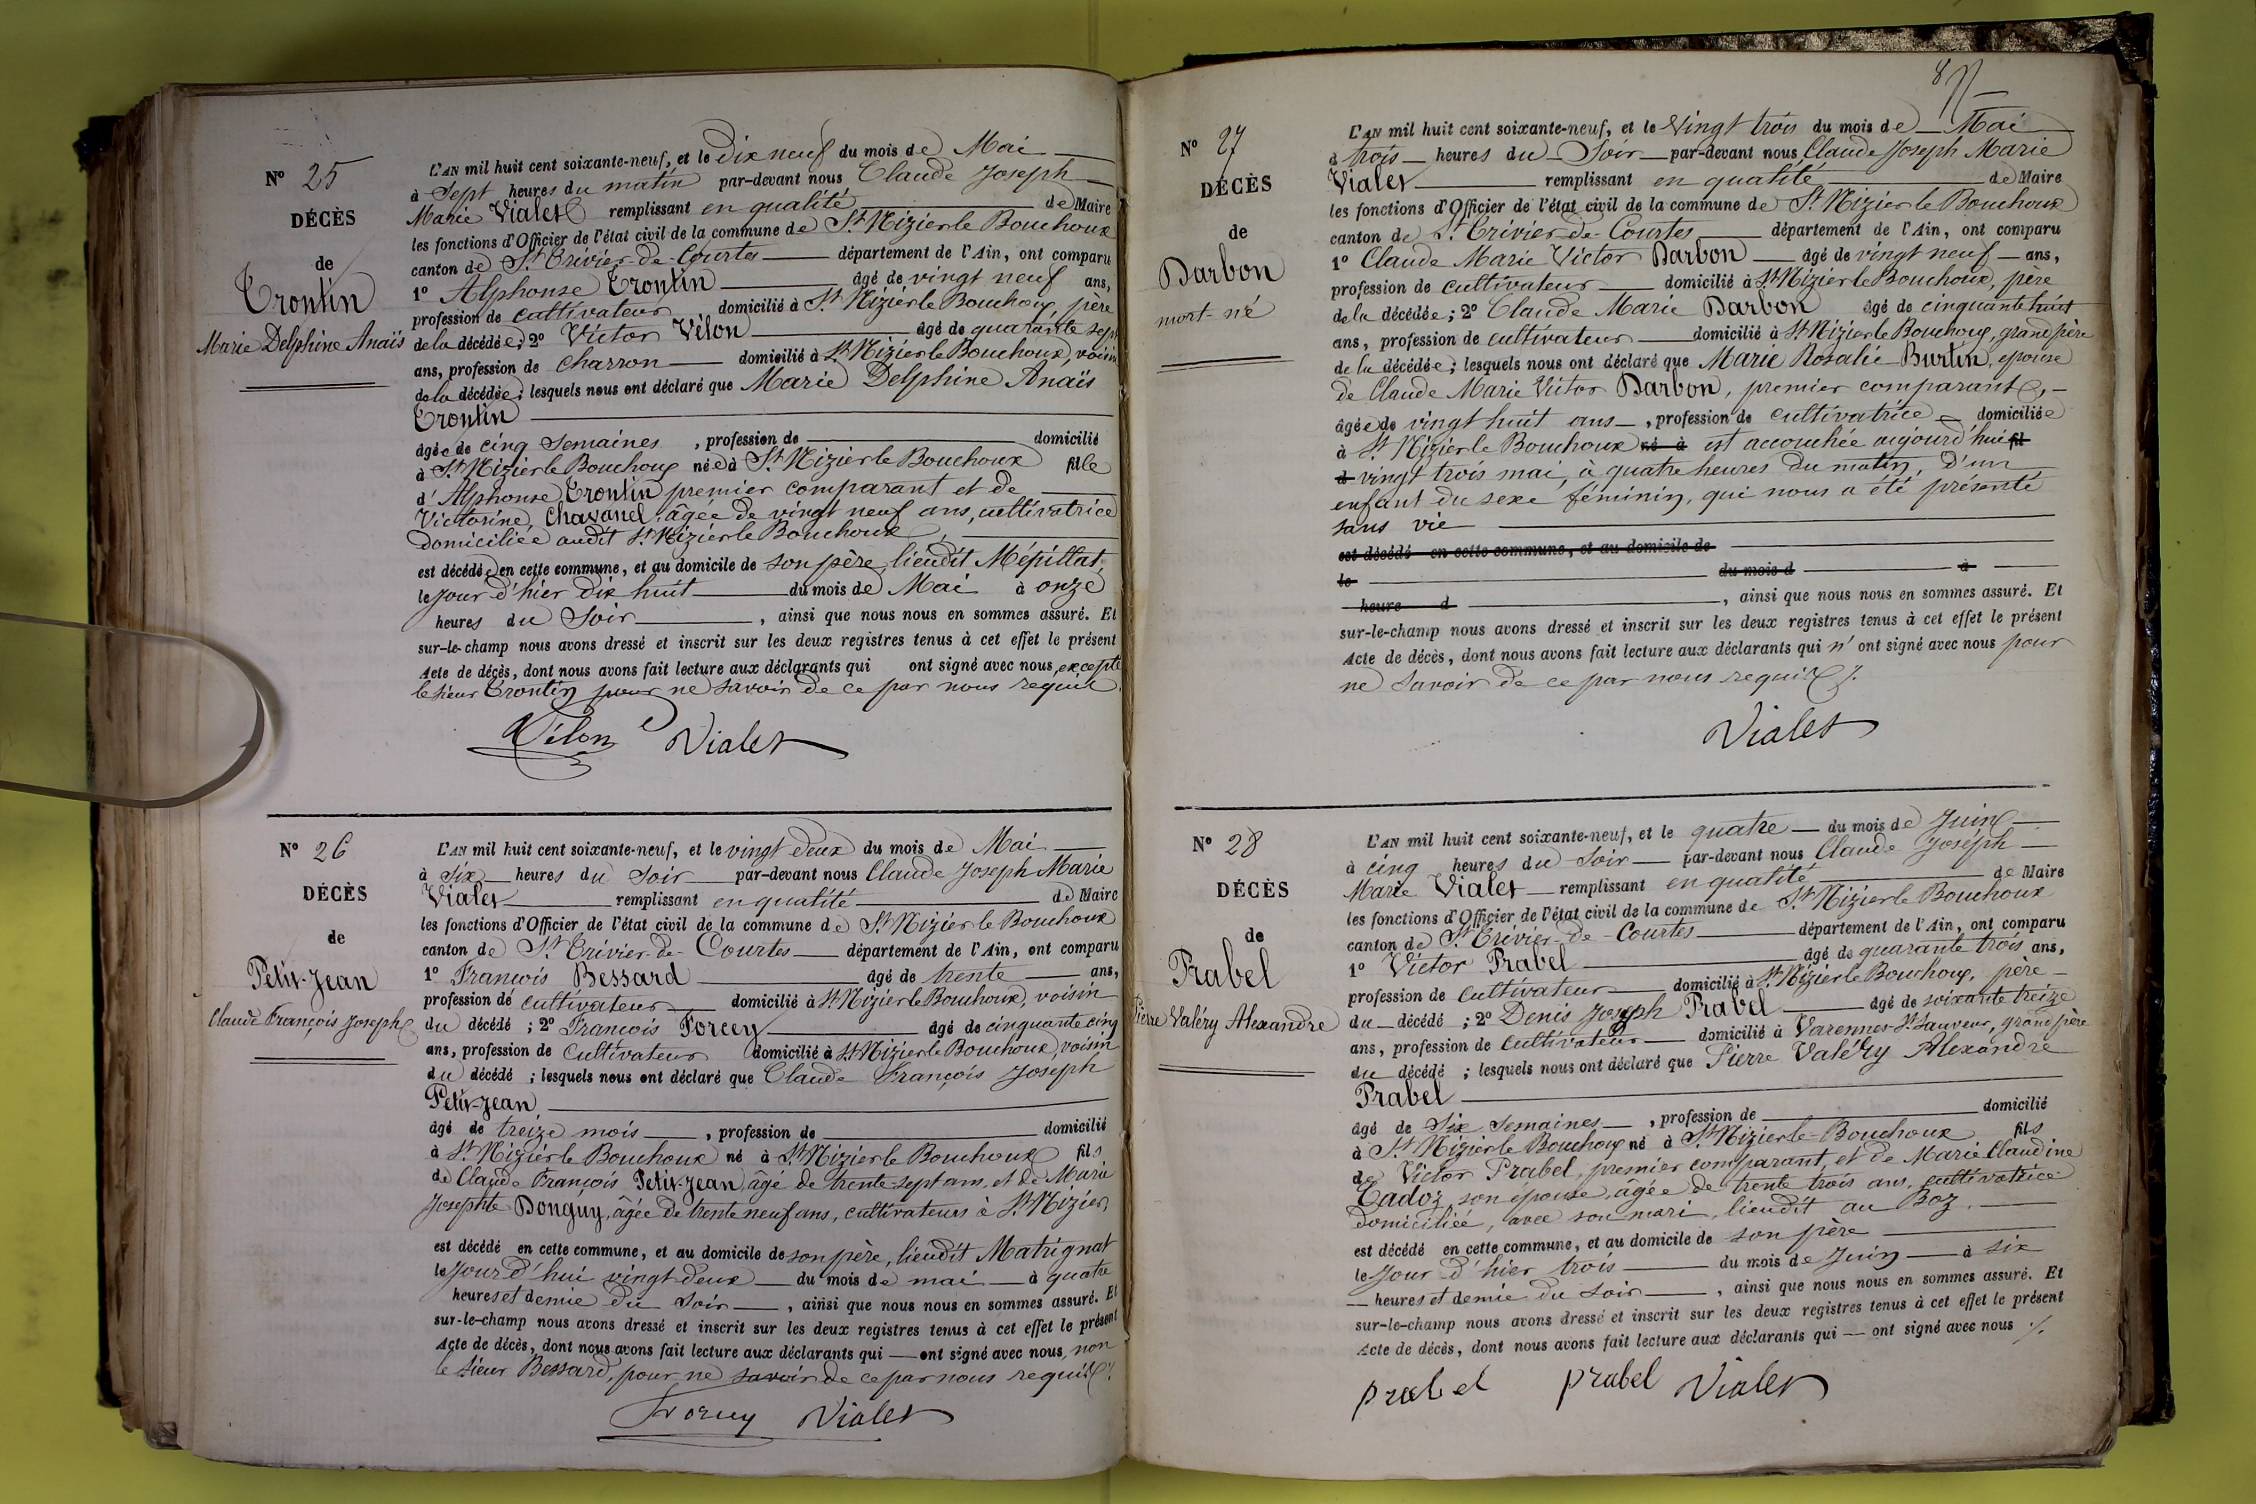 Nº 25
DÉCÈS
de
Trontin
Marie Delphine Anaïs
L'AN mil huit cent soixante-neuf, et le dix neuf du mois de Mai
à Sept heures du matin par-devant nous Claude Joseph
Marie Vialet remplissant en qualité de Maire
les fonctions d'Officier de l'état civil de la commune de St Nizier le Bouchoux
canton de St Trivier-de-Courtes département de l'Ain, ont comparu
1º Alphonse Trontin âgé de vingt neuf ans,
profession de cultivateur domicilié à St Nizier le Bouchoux, père
de la décédée; 2º Victor Vélon âgé de quarante sept
ans, profession de charron domicilié à St Nizier le Bouchoux, voisin
de la décédée; lesquels nous ont déclaré que Marie Delphine Anaïs
Trontin
âgée de cinq Semaines, profession de domicilié
à St Nizier le Bouchoux née à St Nizier le Bouchoux fille
d'Alphonse Trontin premier comparant et de
Victorine Chavanel, âgée de vingt neuf ans, cultivatrice
domiciliée audit St Nizier le Bouchoux,
est décédée en cette commune, et au domicile de son père, lieudit Mépillat,
le jour d'hier dix huit du mois de Mai à onze
heures du Soir, ainsi que nous nous en sommes assuré. Et
sur-le-champ nous avons dressé et inscrit sur les deux registres tenus à cet effet le présent
Acte de décès, dont nous avons fait lecture aux déclarants qui ont signé avec nous, excepté
le sieur Trontin pour ne savoir de ce par nous requis.
Vélon Vialet
Nº 26
DÉCÈS
de
Petit-Jean
Claude François Joseph
L'AN mil huit cent soixante-neuf, et le vingt deux du mois de Mai
à Six heures du Soir par-devant nous Claude Joseph Marie
Vialet remplissant en qualité de Maire
les fonctions d'Officier de l'état civil de la commune de St Nizier le Bouchoux
canton de St Trivier-de-Courtes département de l'Ain, ont comparu
1º François Bessard âgé de trente ans,
profession de cultivateur domicilié à St Nizier le Bouchoux, voisin
du décédé; 2º François Forcey âgé de cinquante cinq
ans, profession de cultivateur domicilié à St Nizier le Bouchoux, voisin
du décédé; lesquels nous ont déclaré que Claude François Joseph
Petit-Jean
âgé de treize mois, profession de domicilié
à St Nizier le Bouchoux né à St Nizier le Bouchoux fils
de Claude François Petit-Jean, âgé de trente-sept ans, et de Marie
Josephte Donguy, âgée de trente neuf ans, cultivateurs à St Nizier,
est décédé en cette commune, et au domicile de son père, lieudit Matrignat
le jour d'hui vingt-deux du mois de mai à quatre
heures et demie du Soir, ainsi que nous nous en sommes assuré. Et
sur-le-champ nous avons dressé et inscrit sur les deux registres tenus à cet effet le présent
Acte de décès, dont nous avons fait lecture aux déclarants qui ont signé avec nous, non
le sieur Bessard, pour ne savoir de ce par nous requis.
Forcey Vialet
Nº 27
DÉCÈS
de
Darbon
mort-né
L'AN mil huit cent soixante-neuf, et le Vingt trois du mois de Mai
à trois heures du Soir par-devant nous Claude Joseph Marie
Vialet remplissant en qualité de Maire
les fonctions d'Officier de l'état civil de la commune de St Nizier le Bouchoux
canton de St Trivier-de-Courtes département de l'Ain, ont comparu
1º Claude Marie Victor Darbon âgé de vingt neuf ans,
profession de cultivateur domicilié à St Nizier le Bouchoux, père
de la décédée; 2º Claude Marie Darbon âgé de cinquante huit
ans, profession de cultivateur domicilié à St Nizier le Bouchoux, grand père
de la décédée; lesquels nous ont déclaré que Marie Rosalie Burtin, épouse
de Claude Marie Victor Darbon, premier comparant,
âgée de vingt huit ans, profession de cultivatrice domiciliée
à St Nizier le Bouchoux né à est accouchée aujourd'hui fil
d vingt trois mai, à quatre heures du matin, d'un
enfant du sexe féminin, qui nous a été présenté
sans vie
est décédé en cette commune, et au domicile de
le du mois d à
heure d, ainsi que nous nous en sommes assuré. Et
sur-le-champ nous avons dressé et inscrit sur les deux registres tenus à cet effet le présent
Acte de décès, dont nous avons fait lecture aux déclarants qui n'ont signé avec nous pour
ne savoir de ce par nous requis ./.
Vialet
Nº 28
DÉCÈS
de
Prabel
Pierre Valéry Alexandre
L'AN mil huit cent soixante-neuf, et le quatre du mois de Juin
à cinq heures du Soir par-devant nous Claude Joseph
Marie Vialet remplissant en qualité de Maire
les fonctions d'Officier de l'état civil de la commune de St Nizier le Bouchoux
canton de St Trivier-de-Courtes département de l'Ain, ont comparu
1º Victor Prabel âgé de quarante trois ans,
profession de cultivateur domicilié à St Nizier le Bouchoux, père
du décédé; 2º Denis Joseph Prabel âgé de soixante treize
ans, profession de cultivateur domicilié à Varennes-St Sauveur, grand père
du décédé; lesquels nous ont déclaré que Pierre Valéry Alexandre
Prabel
âgé de Six Semaines, profession de domicilié
à St Nizier le Bouchoux né à St Nizier-le-Bouchoux fils
de Victor Prabel, premier comparant, et de Marie Claudine
Cadoz, son épouse, âgée de trente trois ans, cultivatrice
domiciliée, avec son mari, lieudit au Boz,
est décédé en cette commune, et au domicile de son père
le jour d'hier trois du mois de Juin à six
heures et demie du Soir, ainsi que nous nous en sommes assuré. Et
sur-le-champ nous avons dressé et inscrit sur les deux registres tenus à cet effet le présent
Acte de décès, dont nous avons fait lecture aux déclarants qui ont signé avec nous ./.
prabel prabel Vialet